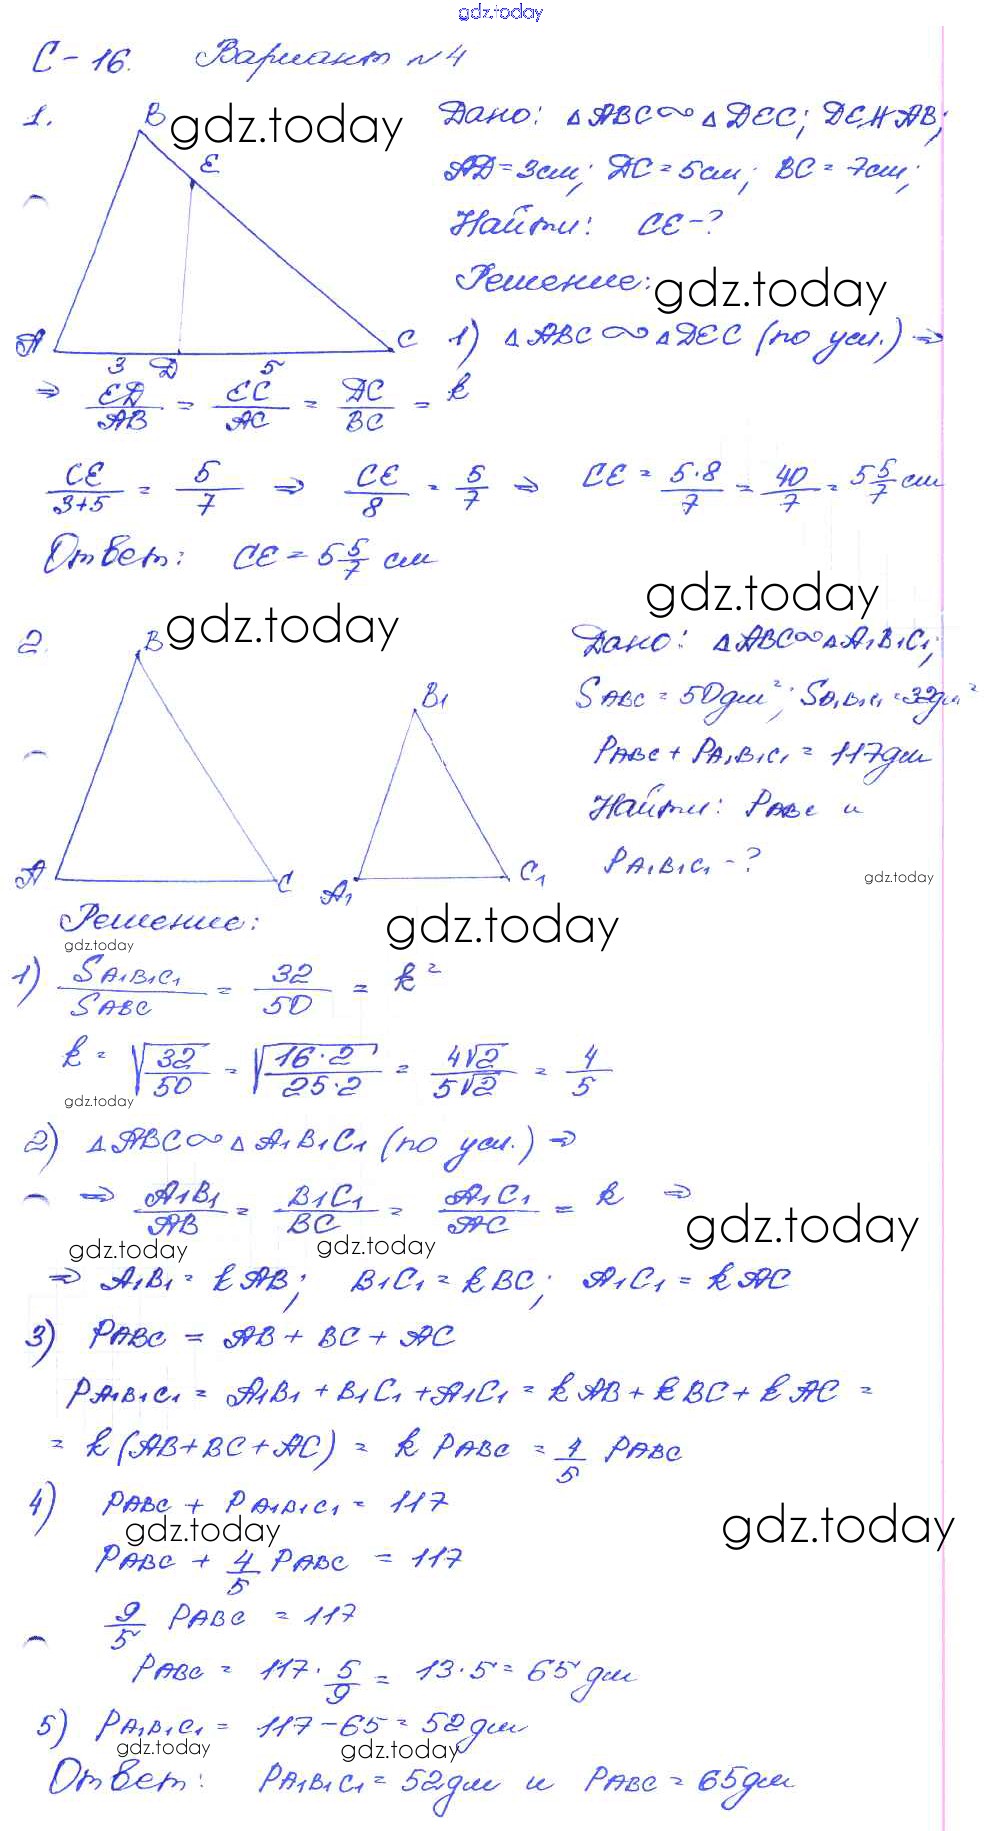 gdz.today
С-16. Вариант №4
1.
B
gdz.today
E
A
3
D
5
C
Дано: △ABC∾△DEC; DE∦AB;
AD=3см; DC=5см; BC=7см;
Найти: CE-?
Решение:
gdz.today
1) △ABC∾△DEC (по усл.) ⇒
⇒ ED/AB = EC/AC = DC/BC = k
CE/3+5 = 5/7 ⇒ CE/8 = 5/7 ⇒ CE = 5·8/7 = 40/7 = 5 5/7 см
Ответ: CE = 5 5/7 см
gdz.today
2.
B
gdz.today
A
C
B1
A1
C1
Дано: △ABC∾△A1B1C1;
SABC = 50дм²; SA1B1C1 = 32дм²
PABC + PA1B1C1 = 117дм
Найти: PABC и
PA1B1C1 - ?
gdz.today
Решение:
gdz.today
gdz.today
1) SA1B1C1/SABC = 32/50 = k²
k = √32/50 = √16·2/25·2 = 4√2/5√2 = 4/5
gdz.today
2) △ABC∾△A1B1C1 (по усл.) ⇒
⇒ A1B1/AB = B1C1/BC = A1C1/AC = k ⇒
gdz.today
gdz.today
gdz.today
⇒ A1B1 = kAB; B1C1 = kBC; A1C1 = kAC
3) PABC = AB + BC + AC
PA1B1C1 = A1B1 + B1C1 + A1C1 = kAB + kBC + kAC =
= k(AB+BC+AC) = k PABC = 4/5 PABC
4) PABC + PA1B1C1 = 117
gdz.today
gdz.today
PABC + 4/5 PABC = 117
9/5 PABC = 117
PABC = 117·5/9 = 13·5 = 65дм
5) PA1B1C1 = 117-65 = 52дм
gdz.today
gdz.today
Ответ: PA1B1C1 = 52дм и PABC = 65дм